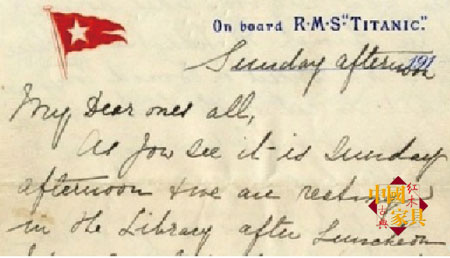 On board R·M·S "TITANIC."
191
Sunday afternoon
My Dear ones all,
As you see it is Sunday
afternoon & we are resting
in the Library after Luncheon
中國
古典
紅木
家具